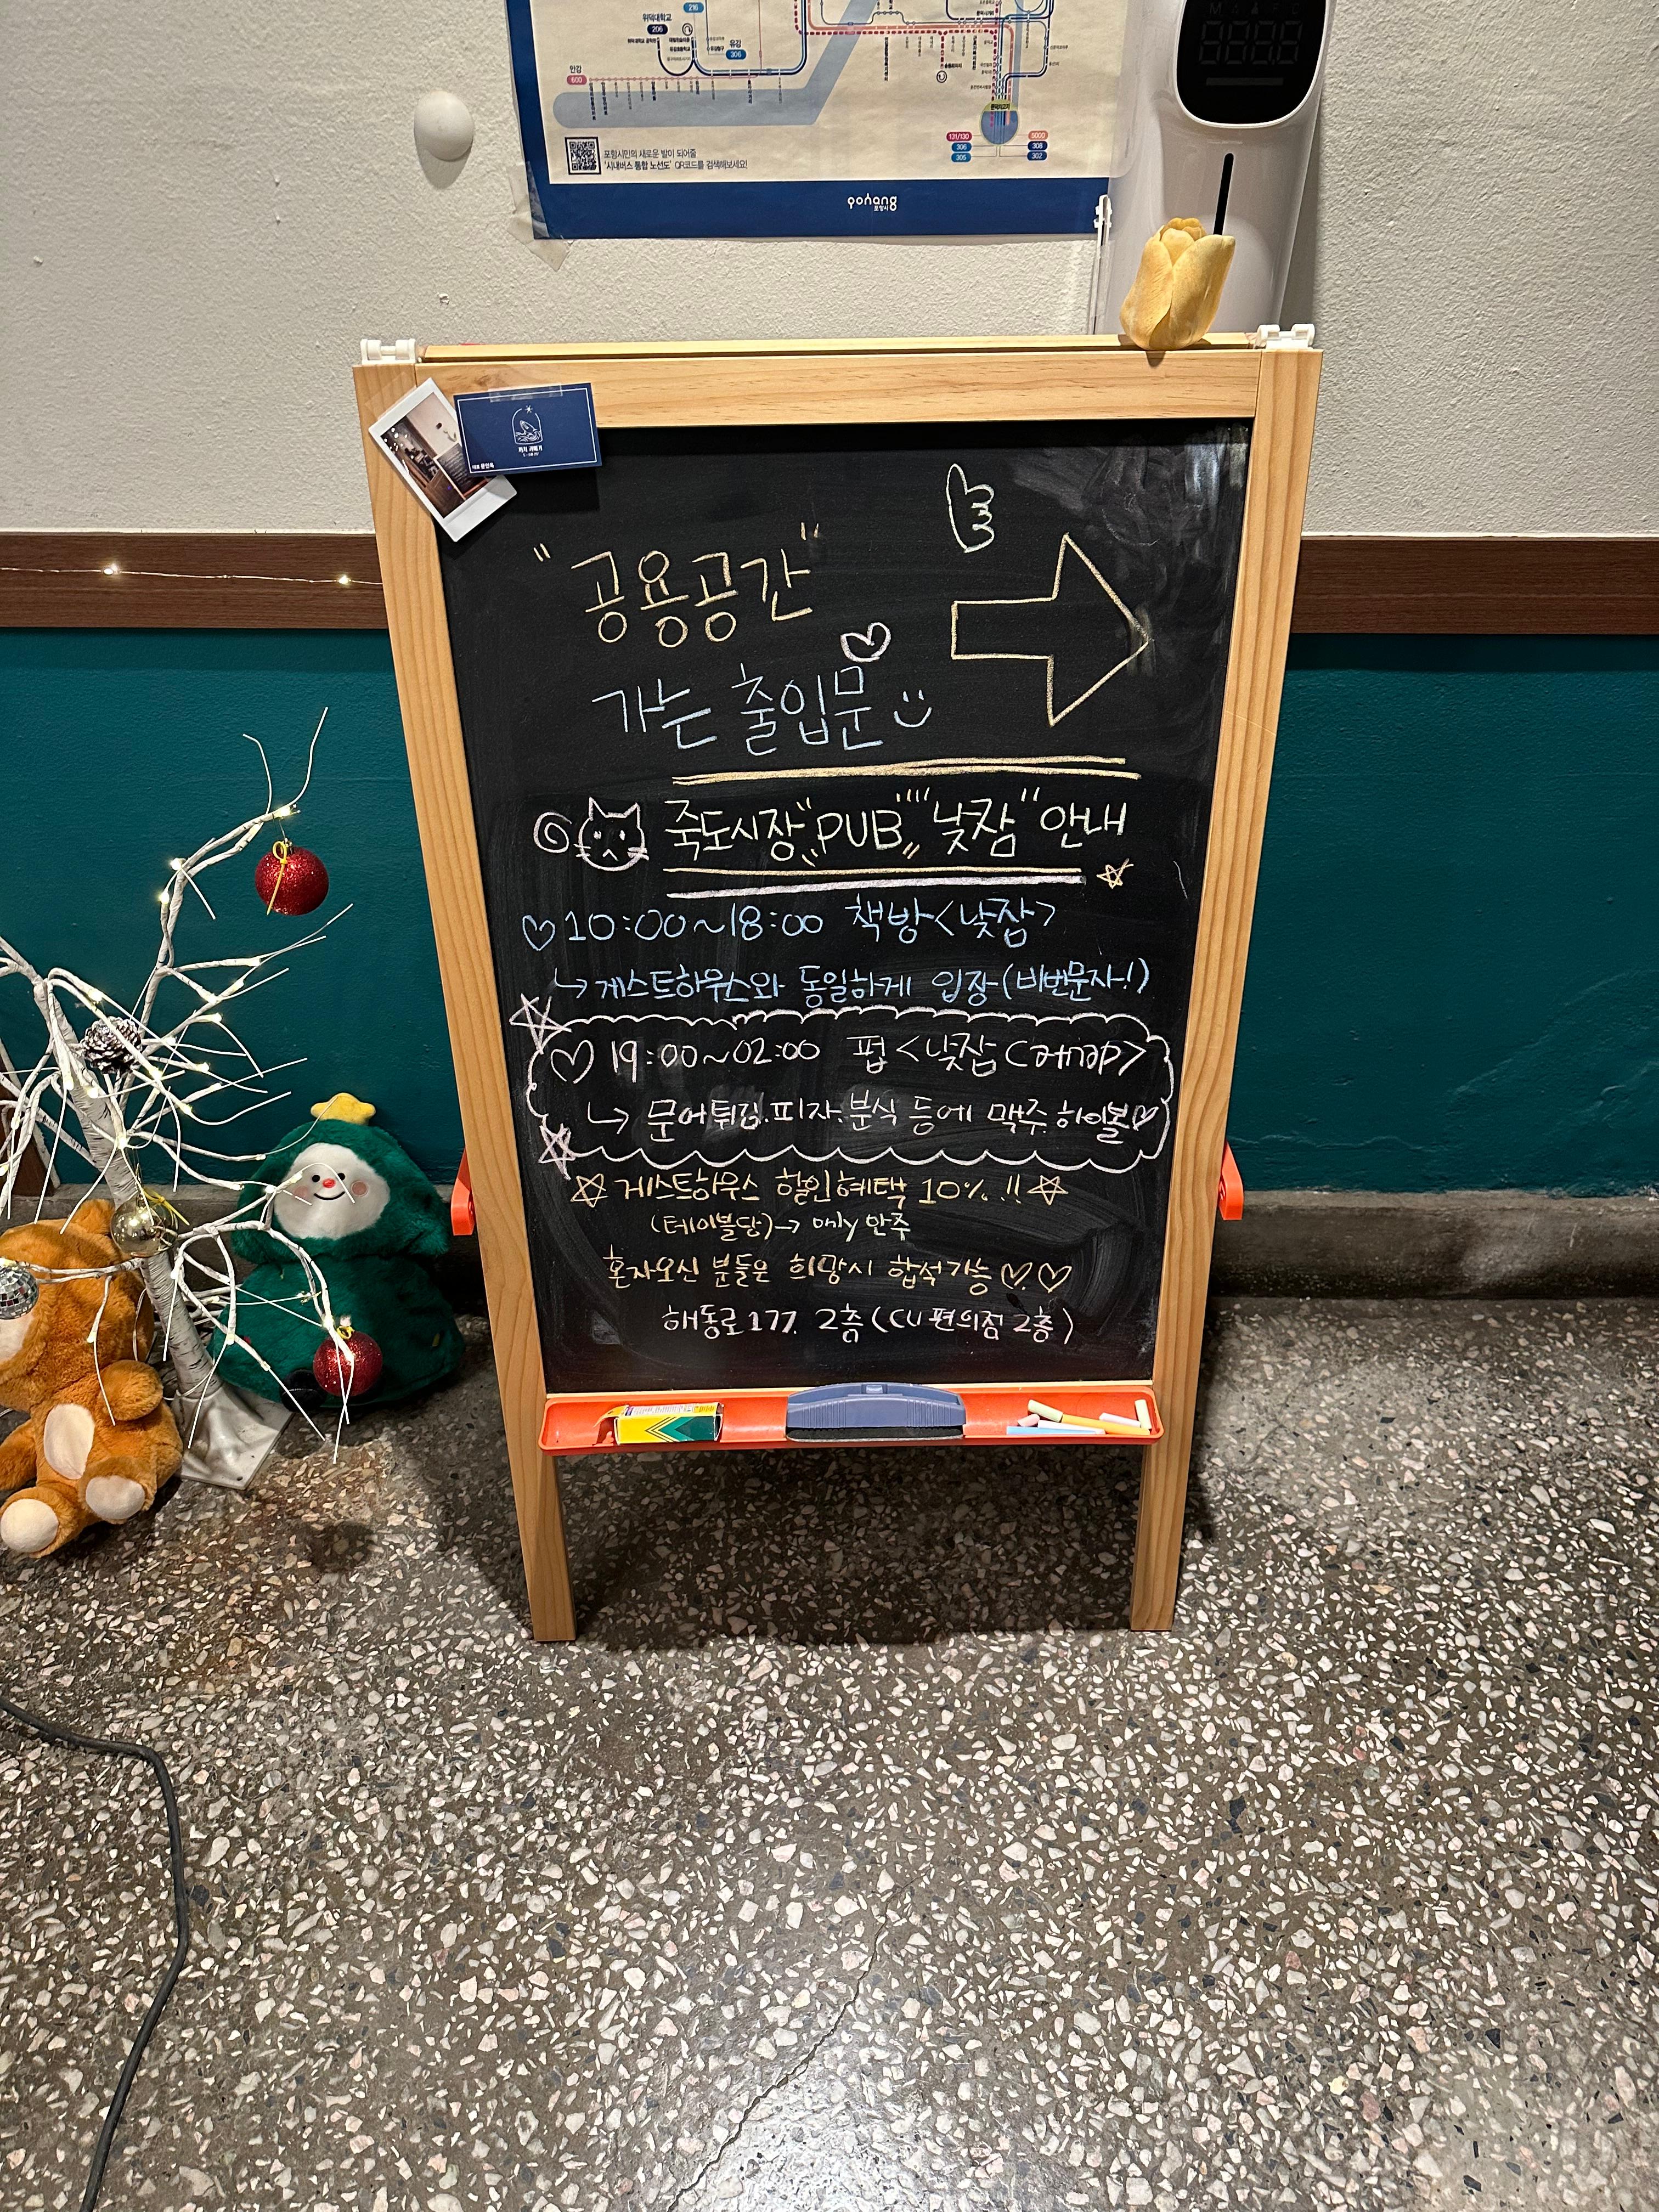 위덕대학교
206
216
유강
306
안강
600
131/130
306
305
5000
308
302
포항시민의 새로운 발이 되어줄
'시내버스 통합 노선도' QR코드를 검색해보세요!
pohang
포항시
"공용공간"
가는 출입문
죽도시장 "PUB" "낮잠" 안내
10:00~18:00 책방<낮잠>
↳ 게스트하우스와 동일하게 입장(비번문자!)
19:00~02:00 펍<낮잠
↳ 문어튀김.피자.분식 등에 맥주.하이볼♡
☆ 게스트하우스 할인혜택 10%!! ☆
(테이블당)→ only 안주
혼자오신 분들은 희망시 합석가능♡♡
해동로177. 2층(CU편의점 2층)